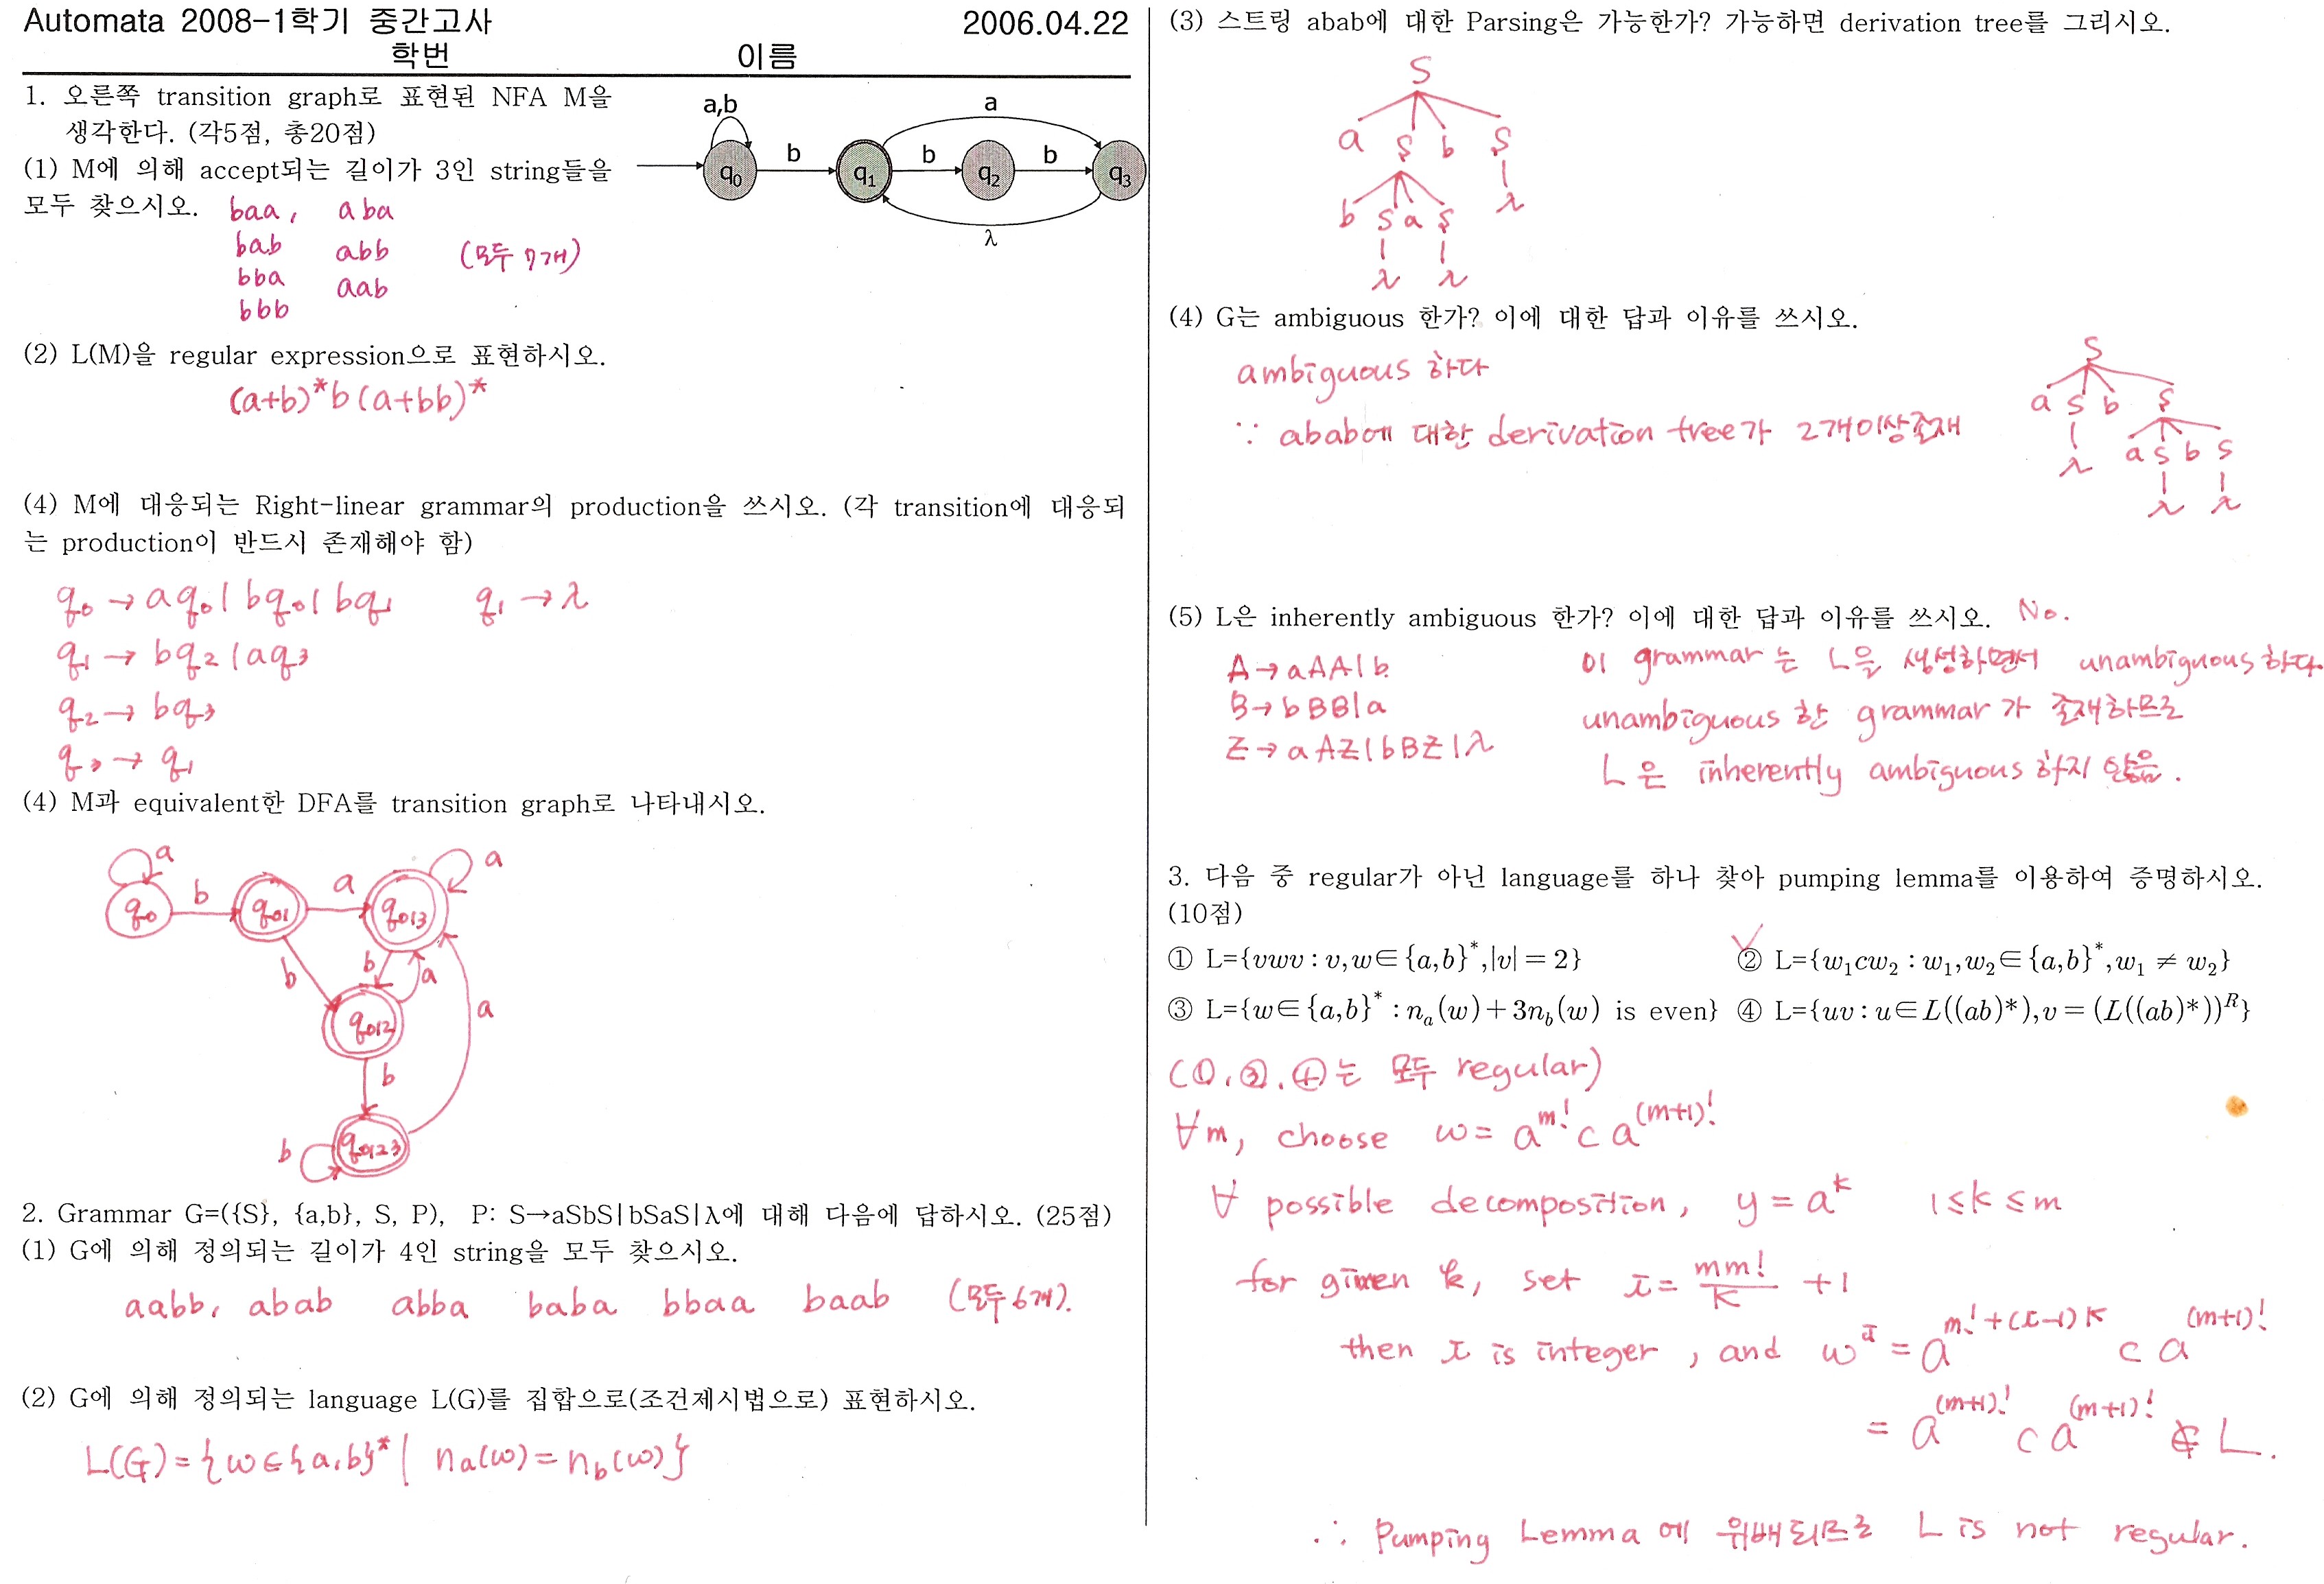 Automata 2008-1학기 중간고사 2006.04.22
학번 이름
1. 오른쪽 transition graph로 표현된 NFA M을
생각한다. (각5점, 총20점)
(1) M에 의해 accept되는 길이가 3인 string들을
모두 찾으시오.
baa, aba
bab abb (모두 7개)
bba aab
bbb
a,b
a
b
b
b
q0
q1
q2
q3
λ
(2) L(M)을 regular expression으로 표현하시오.
(a+b)*b(a+bb)*
(4) M에 대응되는 Right-linear grammar의 production을 쓰시오. (각 transition에 대응되
는 production이 반드시 존재해야 함)
q0 → aq0 | bq0 | bq1 q1 → λ
q1 → bq2 | aq3
q2 → bq3
q3 → q1
(4) M과 equivalent한 DFA를 transition graph로 나타내시오.
a a
q0 b q01 a q013
b b a
q012 a
b
b q0123
2. Grammar G=({S}, {a,b}, S, P), P: S→aSbS|bSaS|λ에 대해 다음에 답하시오. (25점)
(1) G에 의해 정의되는 길이가 4인 string을 모두 찾으시오.
aabb, abab abba baba bbaa baab (모두 6개).
(2) G에 의해 정의되는 language L(G)를 집합으로(조건제시법으로) 표현하시오.
L(G) = {w∈{a,b}* | na(w) = nb(w)}
(3) 스트링 abab에 대한 Parsing은 가능한가? 가능하면 derivation tree를 그리시오.
S
a S b S
λ
b S a S
λ λ
(4) G는 ambiguous 한가? 이에 대한 답과 이유를 쓰시오.
ambiguous 하다
∵ abab에 대한 derivation tree가 2개이상존재
S
a S b S
λ a S b S
λ λ
(5) L은 inherently ambiguous 한가? 이에 대한 답과 이유를 쓰시오. No.
A → aAA | b 이 grammar는 L을 생성하면서 unambiguous 하다.
B → bBB | a unambiguous 한 grammar가 존재하므로
Z → aAZ | bBZ | λ L은 inherently ambiguous 하지 않음.
3. 다음 중 regular가 아닌 language를 하나 찾아 pumping lemma를 이용하여 증명하시오.
(10점)
① L={vwv : v,w∈{a,b}*,|v| = 2} ② L={w1cw2 : w1,w2∈{a,b}*,w1 ≠ w2}
③ L={w∈{a,b}* : na(w)+3nb(w) is even} ④ L={uv : u∈L((ab)*),v = (L((ab)*))^R}
(①, ③, ④는 모두 regular)
∀m, choose w = a^m! c a^(m+1)!
∀ possible decomposition, y = a^k 1≤k≤m
for given k, set i = mm!/k + 1
then i is integer, and w^i = a^m!+(i-1)k c a^(m+1)!
= a^(m+1)! c a^(m+1)! ∉ L.
∴ Pumping Lemma에 위배되므로 L is not regular.